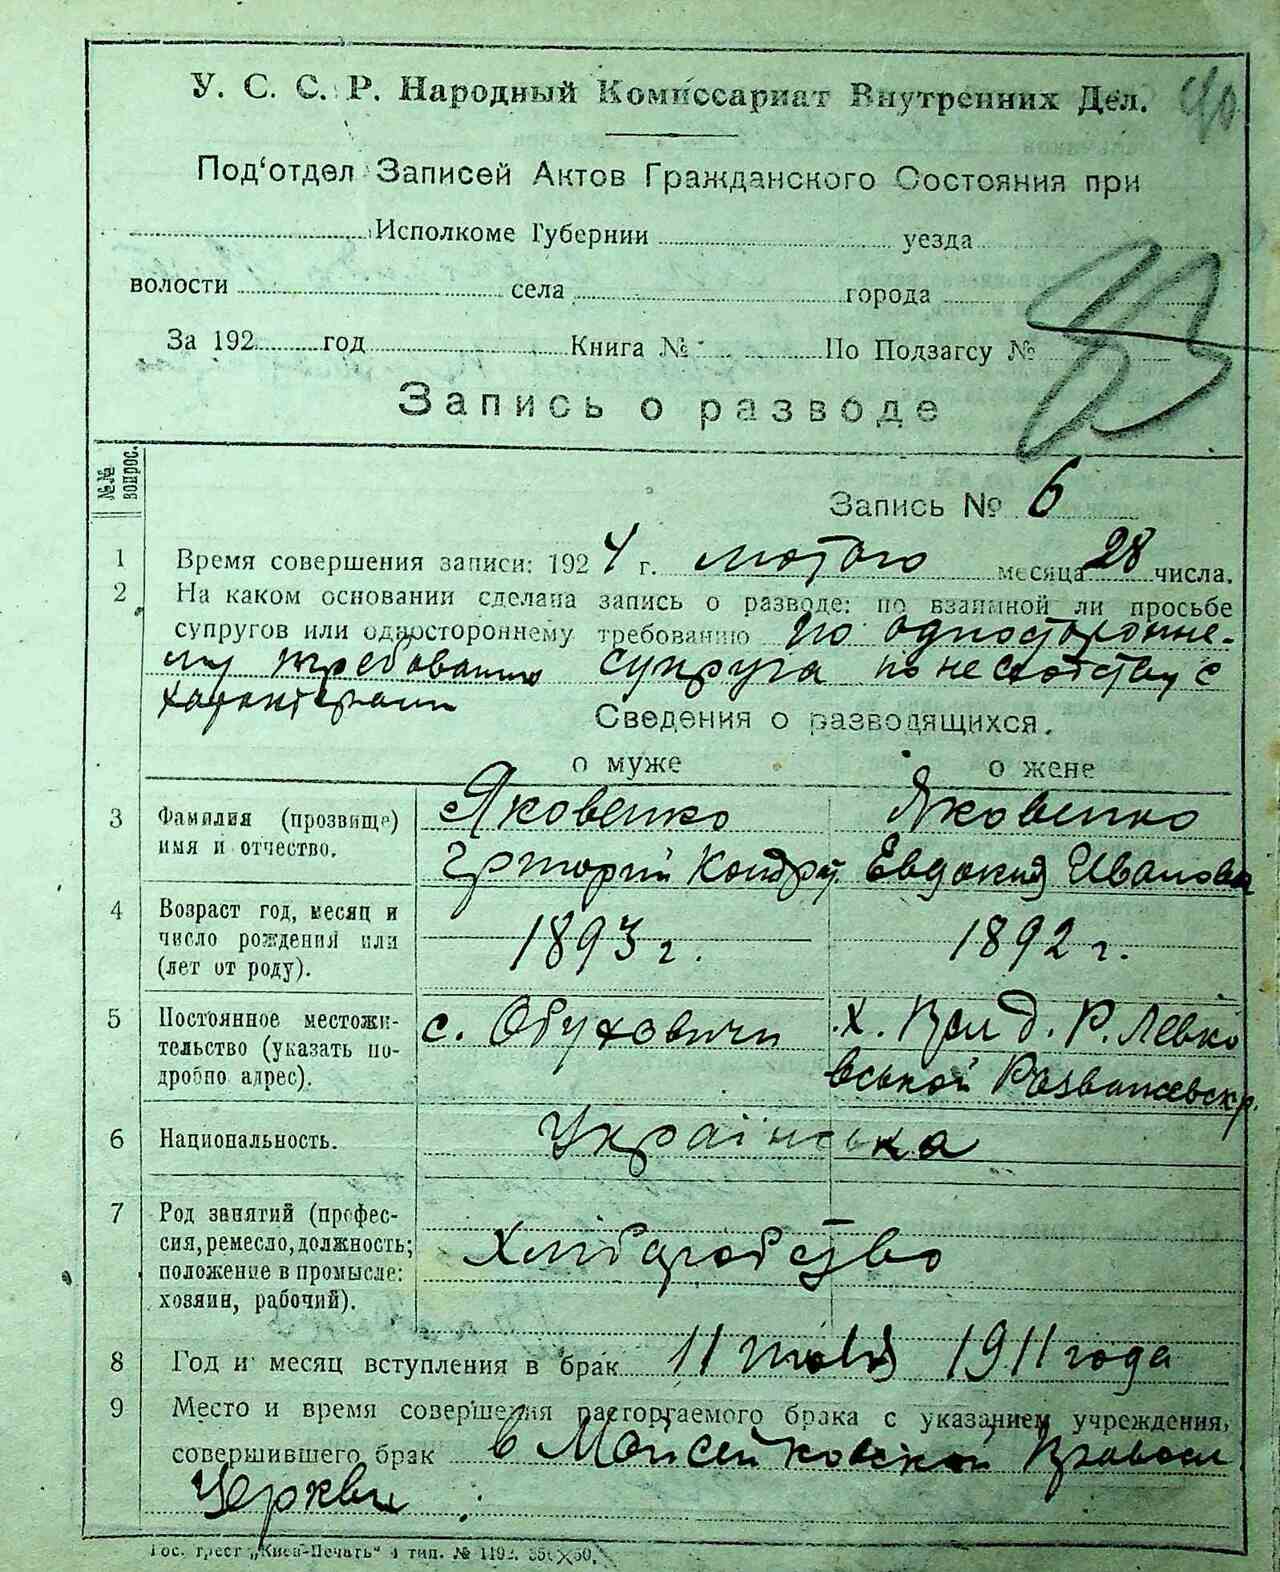 У. С. С. Р. Народный Комиссариат Внутренних Дел.
40
Под‘отдел Записей Актов Гражданского Состояния при
Исполкоме Губернии уезда
волости села города
За 192 год Книга № По Подзагсу №
Запись о разводе
№№ вопрос.
Запись № 6
1 Время совершения записи: 1924 г. лютого месяца 28 числа.
2 На каком основании сделана запись о разводе: по взаимной ли просьбе
супругов или одностороннему требованию по односторонне-
му требованию супруга по не
характерами
Сведения о разводящихся.
о муже о жене
3 Фамилия (прозвище) Яковенко Яковенко
имя и отчество. Григорий Кондр. Евдокия Иванова
4 Возраст год, месяц и
число рождения или 1893 г. 1892 г.
(лет от роду).
5 Постоянное местожи- с. Обуховичи х. д. Р. Левко
тельство (указать по- вской
дробно адрес).
6 Национальность. Українська
7 Род занятий (профес-
сия, ремесло, должность; хліборобство
положение в промысле:
хозяин, рабочий).
8 Год и месяц вступления в брак 11 1911 года
9 Место и время совершения расторгаемого брака с указанием учреждения,
совершившего брак в Мойсейковской Правосл
Церкви
Гос. трест „Киев-Печать“ 4 тип. № 1192.